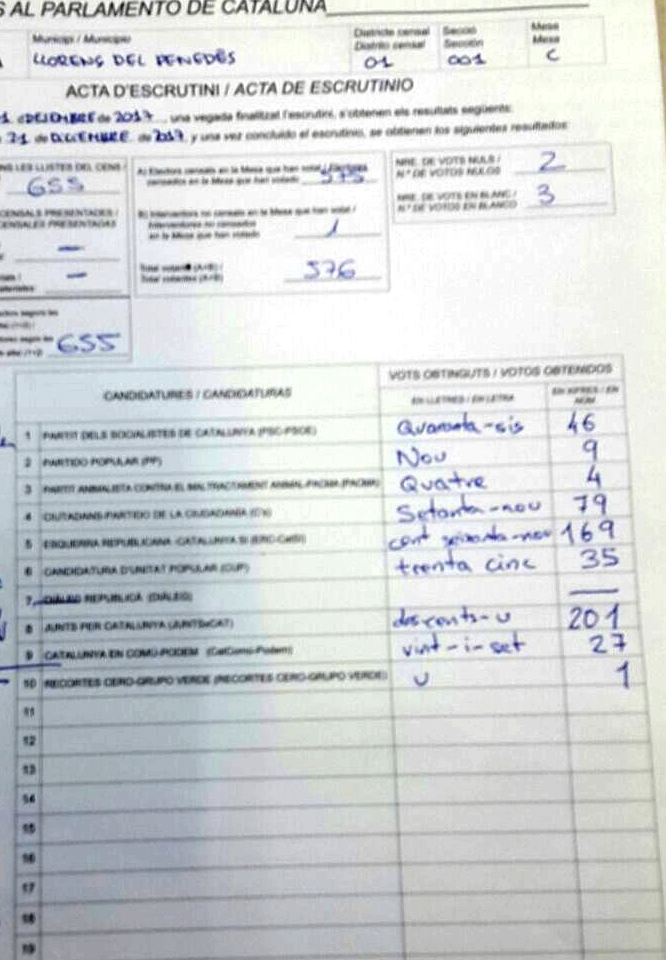 S AL PARLAMENTO DE CATALUÑA
Municipi / Municipio
LLORENS DEL PENEDÈS
Districte censal
Distrito censal
01
Secció
Sección
001
Mesa
Mesa
C
ACTA D'ESCRUTINI / ACTA DE ESCRUTINIO
de 2017, una vegada finalitzat l'escrutini, s'obtenen els resultats següents:
21 de DICIEMBRE de 2017, y una vez concluido el escrutinio, se obtienen los siguientes resultados:
LES LLISTES DEL CENS /
655
CENSALS PRESENTADES /
CENSALES PRESENTADAS
—
—
655
A) Electors censats en la Mesa que han votat / Electores
censados en la Mesa que han votado 575
B) Interventors no censats en la Mesa que han votat /
Interventores no censados
en la Mesa que han votado 1
Total votants (A+B) /
Total votantes (A+B) 576
NRE. DE VOTS NULS /
N.º DE VOTOS NULOS 2
NRE. DE VOTS EN BLANC /
N.º DE VOTOS EN BLANCO 3
CANDIDATURES / CANDIDATURAS
VOTS OBTINGUTS / VOTOS OBTENIDOS
EN LLETRES / EN LETRA
EN XIFRES / EN NÚM.
1 PARTIT DELS SOCIALISTES DE CATALUNYA (PSC-PSOE) Quaranta-sis 46
2 PARTIDO POPULAR (PP) Nou 9
3 PARTIT ANIMALISTA CONTRA EL MALTRACTAMENT ANIMAL-PACMA (PACMA) Quatre 4
4 CIUTADANS-PARTIDO DE LA CIUDADANÍA (C's) Setanta-nou 79
5 ESQUERRA REPUBLICANA-CATALUNYA SÍ (ERC-CatSí) cent seixanta-nou 169
6 CANDIDATURA D'UNITAT POPULAR (CUP) trenta cinc 35
7 DIÀLEG REPUBLICÀ (DIÀLEG) —
8 JUNTS PER CATALUNYA (JUNTSxCAT) dos-cents-u 201
9 CATALUNYA EN COMÚ-PODEM (CatComú-Podem) vint-i-set 27
10 RECORTES CERO-GRUPO VERDE (RECORTES CERO-GRUPO VERDE) u 1
11
12
13
14
15
16
17
18
19